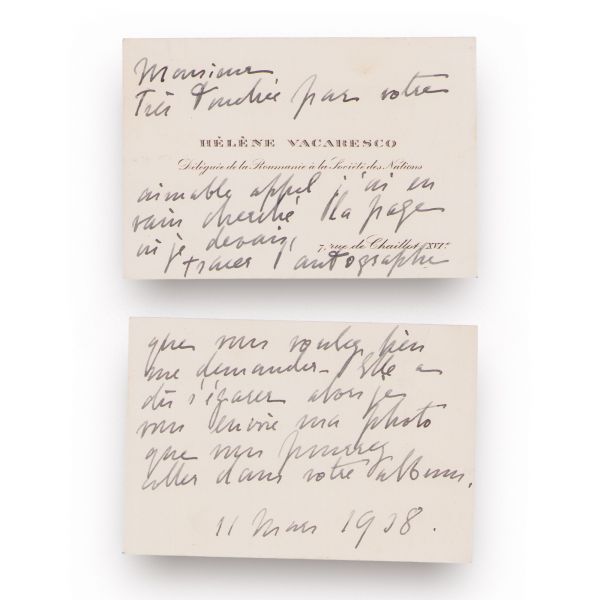 Monsieur
Très touchée par votre
HÉLÈNE VACARESCO
Déléguée de la Roumanie à la Société des Nations
aimable appel j'ai en
vain cherché la page
où je devais
7, rue de Chaillot (XVIe)
tracer l'autographe
que vous voulez bien
me demander. Elle a
dû s'égarer alors je
vous envoie ma photo
que vous pourrez
coller dans votre album.
11 Mars 1938.